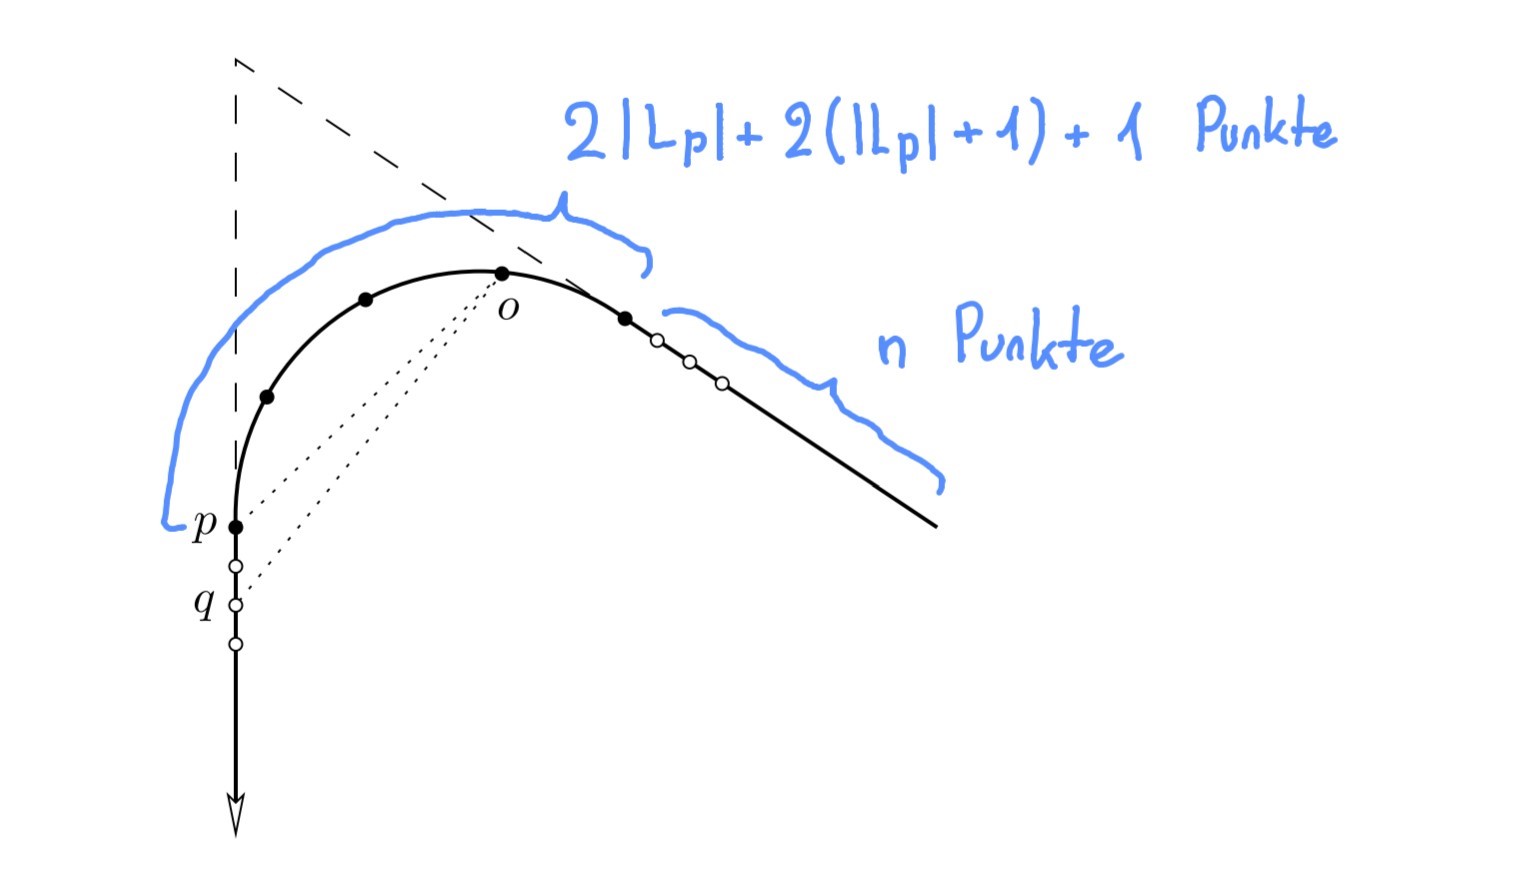 2|Lp| + 2(|Lp| + 1) + 1 Punkte
o
n Punkte
p
q